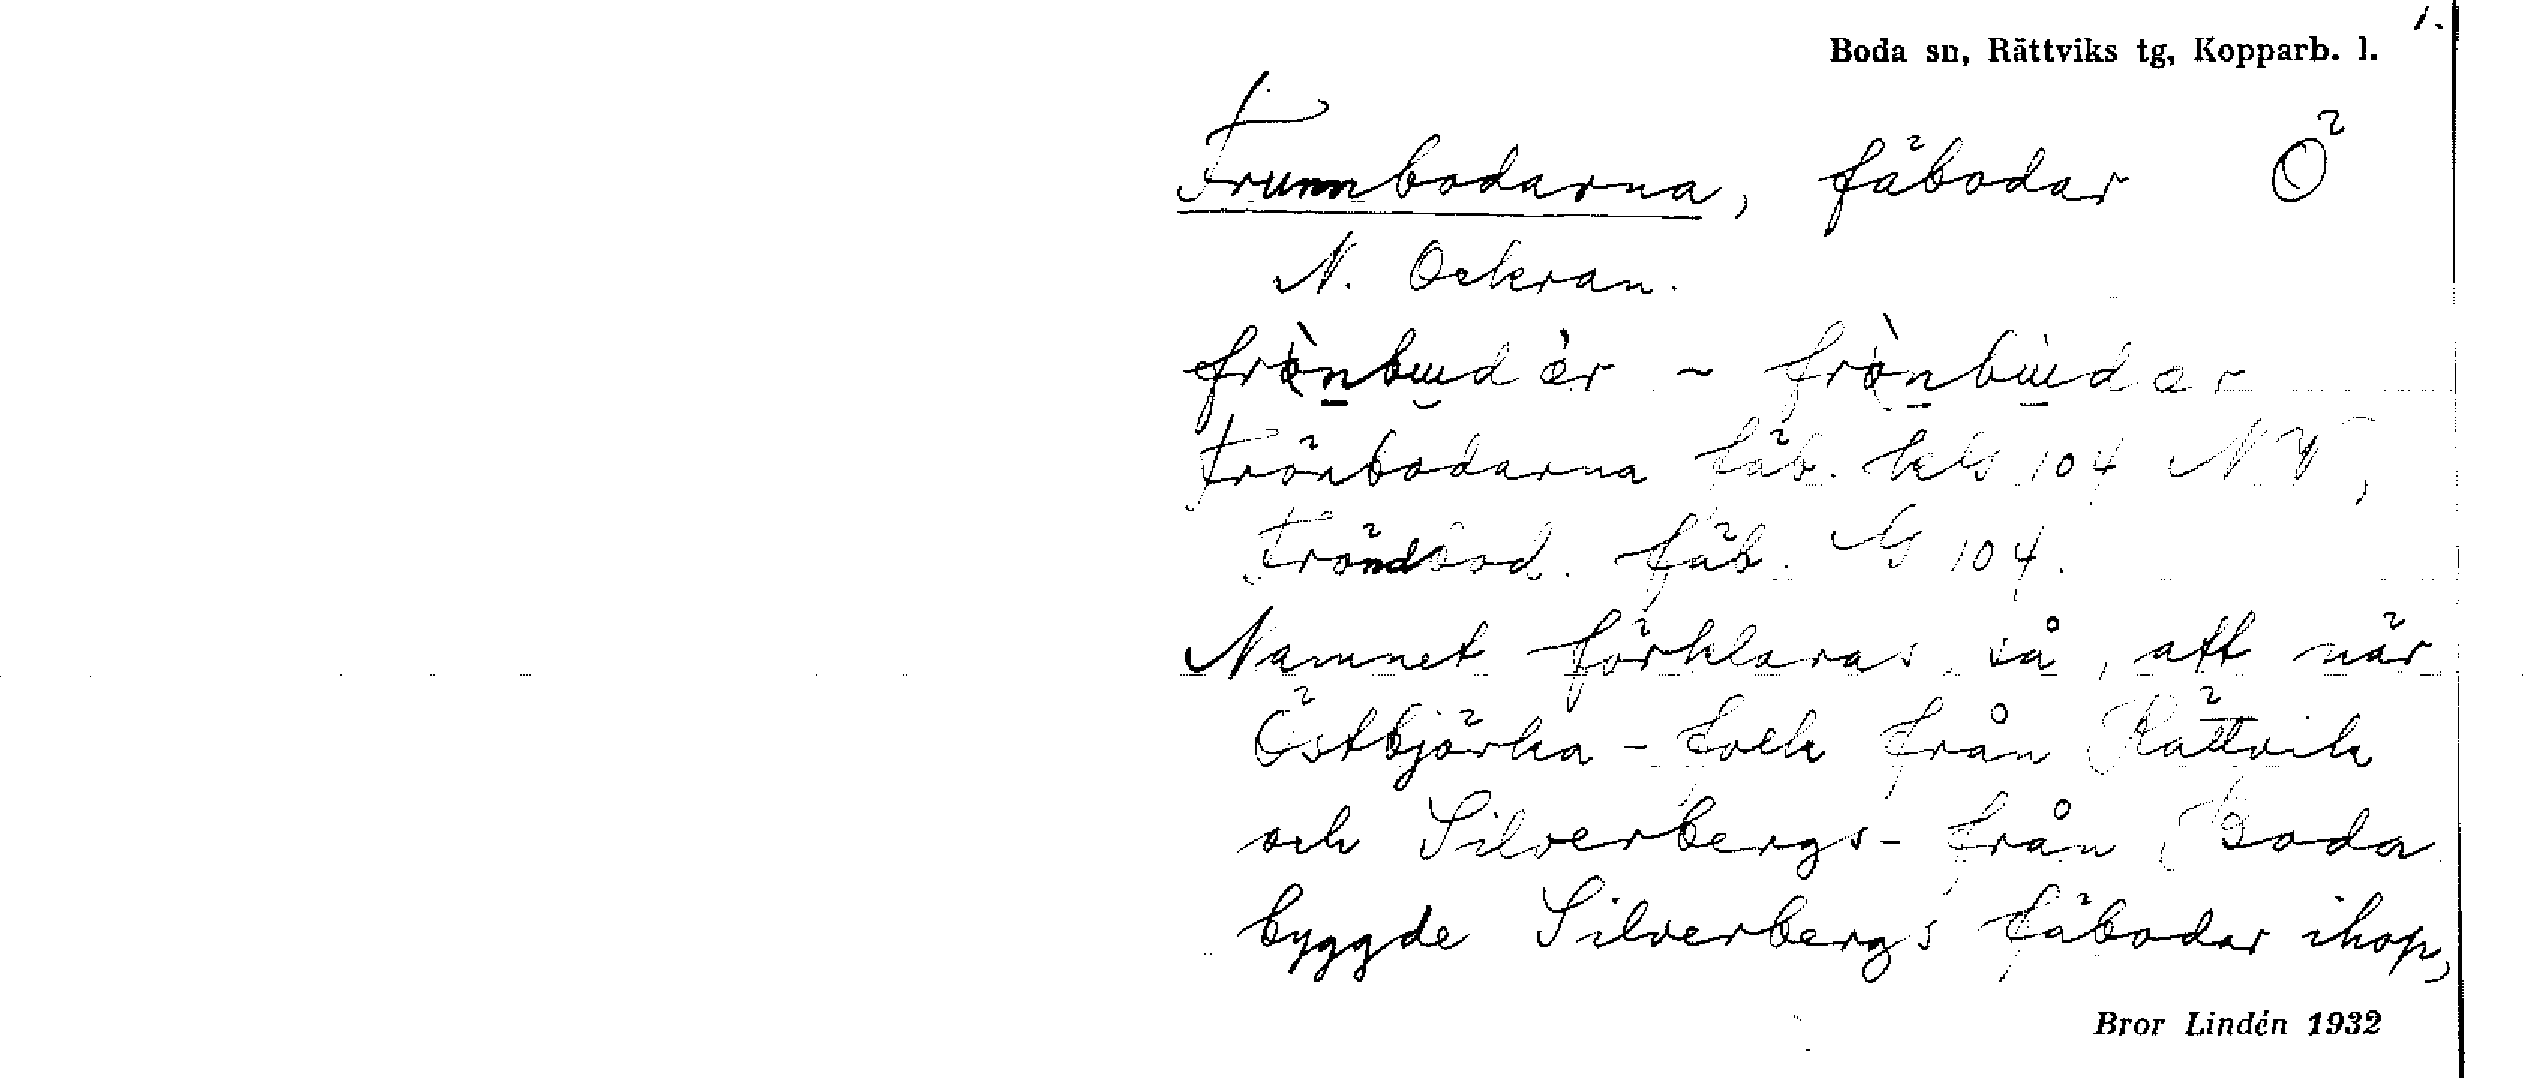 1.
Boda sn, Rättviks tg, Kopparb. l.
Frunnbodarna, fäbodar Ö
N. Ockran.
Frönbodarna fäb. kls 104 NV,
Fröndbod. fäb. G 104.
Namnet förklaras så, att när
Östbjörka-folk från Rättvik
och Silverbergs- från Boda
byggde Silverbergs fäbodar ihop,
Bror Lindén 1932